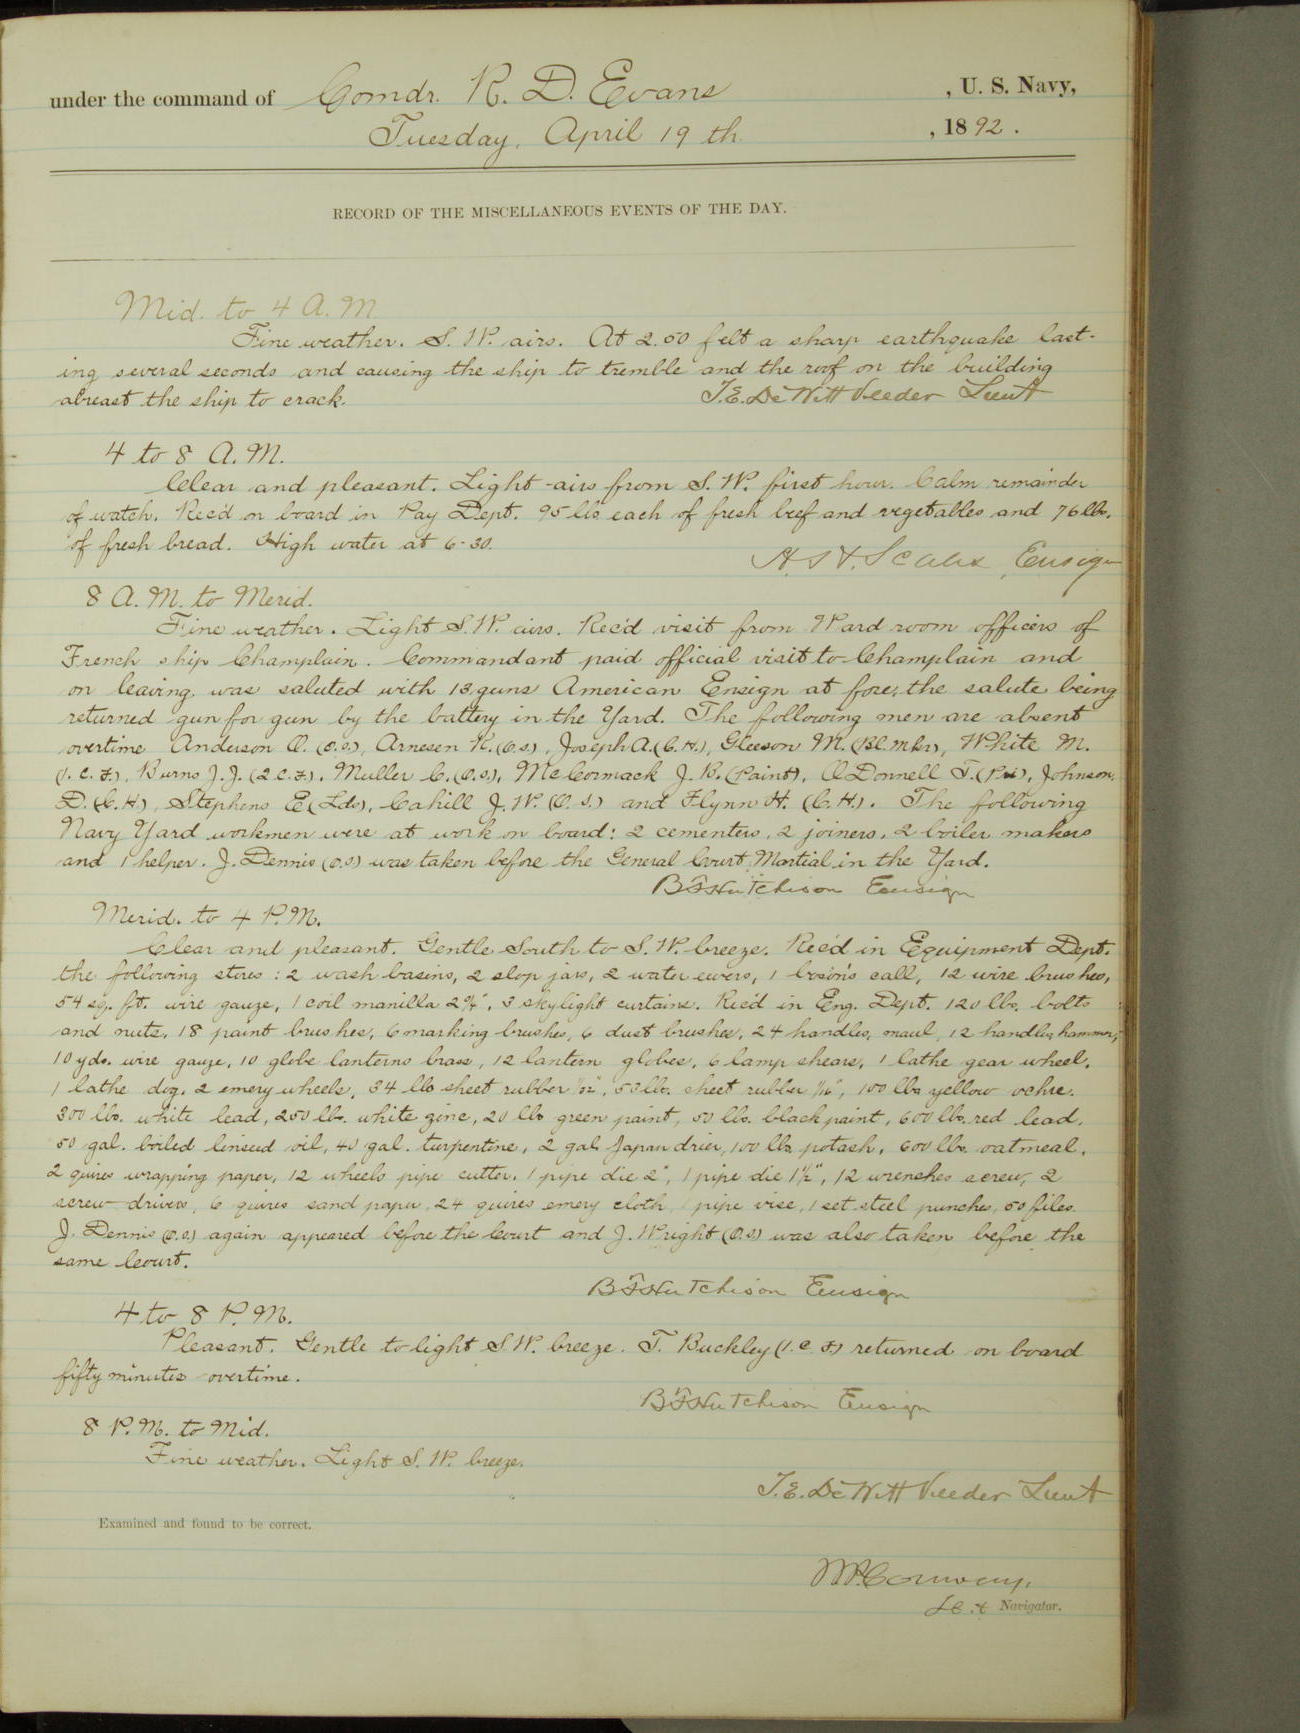 under the command of Comdr. R. D. Evans , U. S. Navy,
Tuesday, April 19th , 1892.
RECORD OF THE MISCELLANEOUS EVENTS OF THE DAY.
Mid. to 4 A.M.
Fine weather. S. W. airs. At 2.50 felt a sharp earthquake last-
ing several seconds and causing the ship to tremble and the roof on the building
abreast the ship to crack. T.E. DeWitt Veeder Lieut
4 to 8 A.M.
Clear and pleasant. Light airs from S. W. first hour. Calm remainder
of watch. Rec'd on board in Pay Dept. 95 lbs each of fresh beef and vegetables and 76 lbs.
of fresh bread. High water at 6-30.
Ensign
8 A.M. to Merid.
Fine weather. Light S.W. airs. Rec'd visit from Ward room officers of
French ship Champlain. Commandant paid official visit to Champlain and
on leaving was saluted with 13 guns American Ensign at fore; the salute being
returned gun for gun by the battery in the Yard. The following men are absent
overtime Anderson O. (O.S.), Arnesen K. (O.S.), Joseph A. (C.H.), Gleeson M. (Bl.Mkr), White M.
(1.C.F.), Burns J.J. (2.C.F.), Muller C. (O.S.), McCormack J.B. (Paint), O'Donnell T. (Pri), Johnson,
D. (C.H.), Stephens E (Lds), Cahill J.W. (O.S.) and Flynn H. (C.H.). The following
Navy Yard workmen were at work on board: 2 cementers, 2 joiners, 2 boiler makers
and 1 helper. J. Dennis (O.S.) was taken before the General Court Martial in the Yard.
B F Hutchison Ensign
Merid. to 4 P.M.
Clear and pleasant. Gentle South to S.W. breeze. Rec'd in Equipment Dept.
the following stores: 2 wash basins, 2 slop jars, 2 water ewers, 1 bosn's call, 12 wire brushes,
54 sq. ft. wire gauze, 1 coil manilla 2¾", 3 skylight curtains. Rec'd in Eng. Dept. 120 lbs. bolts
and nuts, 18 paint brushes, 6 marking brushes, 6 dust brushes, 24 handles, maul, 12 handles, hammer,
10 yds. wire gauze, 10 globe lanterns brass, 12 lantern globes, 6 lamp shears, 1 lathe gear wheel,
1 lathe dog, 2 emery wheels, 34 lbs sheet rubber 1/32", 53 lbs. sheet rubber 1/16", 100 lbs yellow ochre,
300 lbs. white lead, 250 lbs. white zinc, 20 lbs green paint, 50 lbs. black paint, 600 lbs. red lead,
50 gal. boiled linseed oil, 40 gal. turpentine, 2 gal. Japan drier, 100 lbs. potash, 600 lbs. oatmeal,
2 quires wrapping paper, 12 wheels pipe cutter, 1 pipe die 2", 1 pipe die 1½", 12 wrenches screw, 2
screw drivers, 6 quires sand paper, 24 quires emery cloth, 1 pipe vise, 1 set steel punches, 50 files.
J. Dennis (O.S.) again appeared before the Court and J. Wright (O.S) was also taken before the
same Court.
B F Hutchison Ensign
4 to 8 P.M.
Pleasant. Gentle to light S.W. breeze. T. Buckley (1.C.F.) returned on board
fifty minutes overtime.
B F Hutchison Ensign
8 P.M. to Mid.
Fine weather. Light S.W. breeze.
T.E. DeWitt Veeder Lieut
Examined and found to be correct.
W.P. Conway,
Navigator.